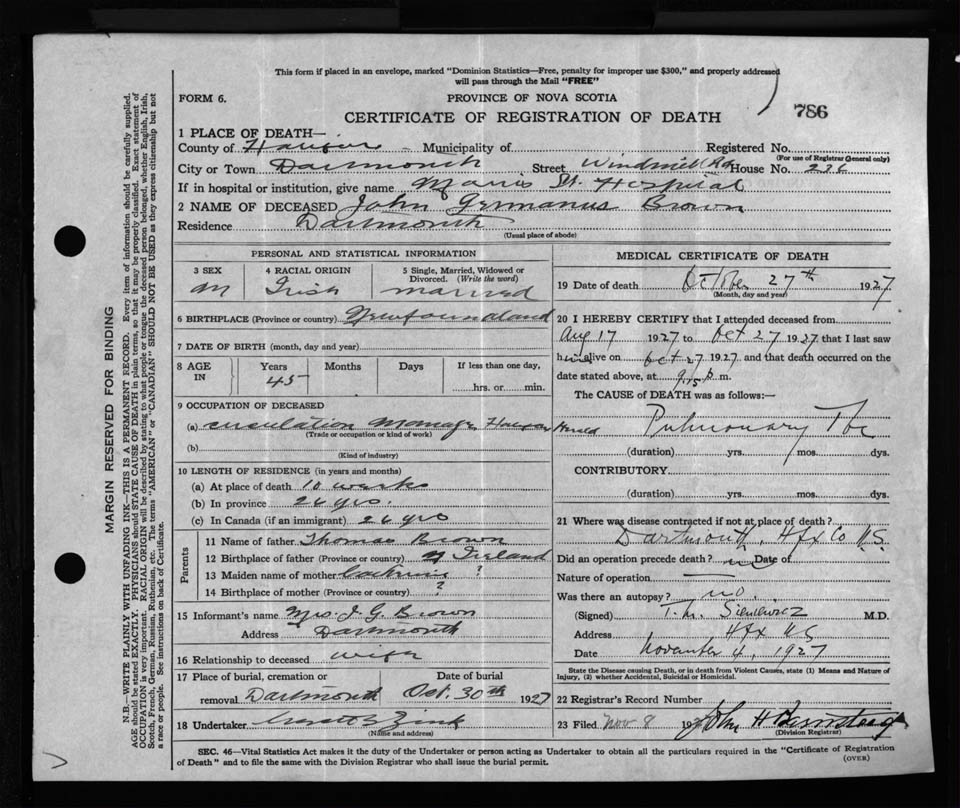 This form if placed in an envelope, marked "Dominion Statistics—Free, penalty for improper use $300," and properly addressed
will pass through the Mail "FREE"
FORM 6.
PROVINCE OF NOVA SCOTIA
CERTIFICATE OF REGISTRATION OF DEATH
786
1 PLACE OF DEATH—
County of Halifax Municipality of Registered No.
(For use of Registrar General only)
City or Town Dartmouth Street Windmill Rd House No. 236
If in hospital or institution, give name St. Hospital
2 NAME OF DECEASED John Germanus Brown
Residence Dartmouth
(Usual place of abode)
PERSONAL AND STATISTICAL INFORMATION
3 SEX 4 RACIAL ORIGIN 5 Single, Married, Widowed or Divorced. (Write the word)
M Irish married
6 BIRTHPLACE (Province or country) Newfoundland
7 DATE OF BIRTH (month, day and year)
8 AGE IN Years Months Days If less than one day,
45 hrs. or min.
9 OCCUPATION OF DECEASED
(a) circulation Manager Halifax Herald
(Trade or occupation or kind of work)
(b)
(Kind of industry)
10 LENGTH OF RESIDENCE (in years and months)
(a) At place of death 10 weeks
(b) In province 26 yrs.
(c) In Canada (if an immigrant) 26 yrs
Parents
11 Name of father Thomas Brown
12 Birthplace of father (Province or country) Ireland
13 Maiden name of mother ?
14 Birthplace of mother (Province or country) ?
15 Informant's name Mrs. J. G. Brown
Address Dartmouth
16 Relationship to deceased wife
17 Place of burial, cremation or Date of burial
removal Dartmouth Oct. 30th 1927
18 Undertaker Zink
(Name and address)
MEDICAL CERTIFICATE OF DEATH
19 Date of death October 27th 1927
(Month, day and year)
20 I HEREBY CERTIFY that I attended deceased from
Aug 17 1927 to Oct 27 1927 that I last saw
him alive on Oct 27 1927 and that death occurred on the
date stated above, at 9.15 p m.
The CAUSE of DEATH was as follows:—
Pulmonary Tbc
(duration) yrs. mos. dys.
CONTRIBUTORY
(duration) yrs. mos. dys.
21 Where was disease contracted if not at place of death?
Dartmouth, Hfx Co N.S.
Did an operation precede death? no Date of
Nature of operation —
Was there an autopsy? no.
(Signed) T. M. Sieniewicz M.D.
Address Hfx NS
Date November 4, 1927
State the Disease causing Death, or in death from Violent Causes, state (1) Means and Nature of
Injury, (2) whether Accidental, Suicidal or Homicidal.
22 Registrar's Record Number
23 Filed Nov 8 192 John H
(Division Registrar)
SEC. 46—Vital Statistics Act makes it the duty of the Undertaker or person acting as Undertaker to obtain all the particulars required in the "Certificate of Registration
of Death" and to file the same with the Division Registrar who shall issue the burial permit.
(OVER)
MARGIN RESERVED FOR BINDING
N.B.—WRITE PLAINLY WITH UNFADING INK—THIS IS A PERMANENT RECORD. Every item of information should be carefully supplied.
AGE should be stated EXACTLY. PHYSICIANS should STATE CAUSE OF DEATH in plain terms, so that it may be properly classified. Exact statement of
OCCUPATION is very important. RACIAL ORIGIN will be described by stating to what people or tongue the deceased person belonged, whether English, Irish,
Scotch, French, German, Russian, Ruthenian, etc. The terms "AMERICAN" or "CANADIAN" SHOULD NOT BE USED as they express citizenship but not
a race or people. See instructions on back of Certificate.